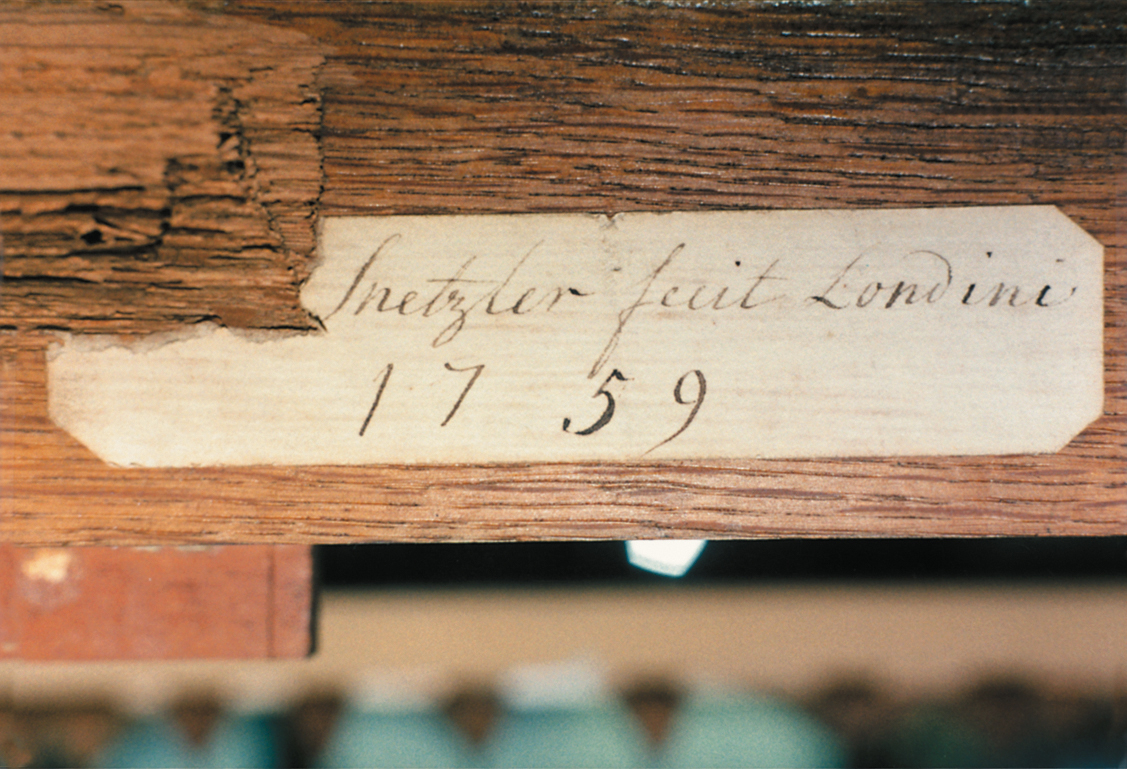 Snetzler fecit Londini
1759